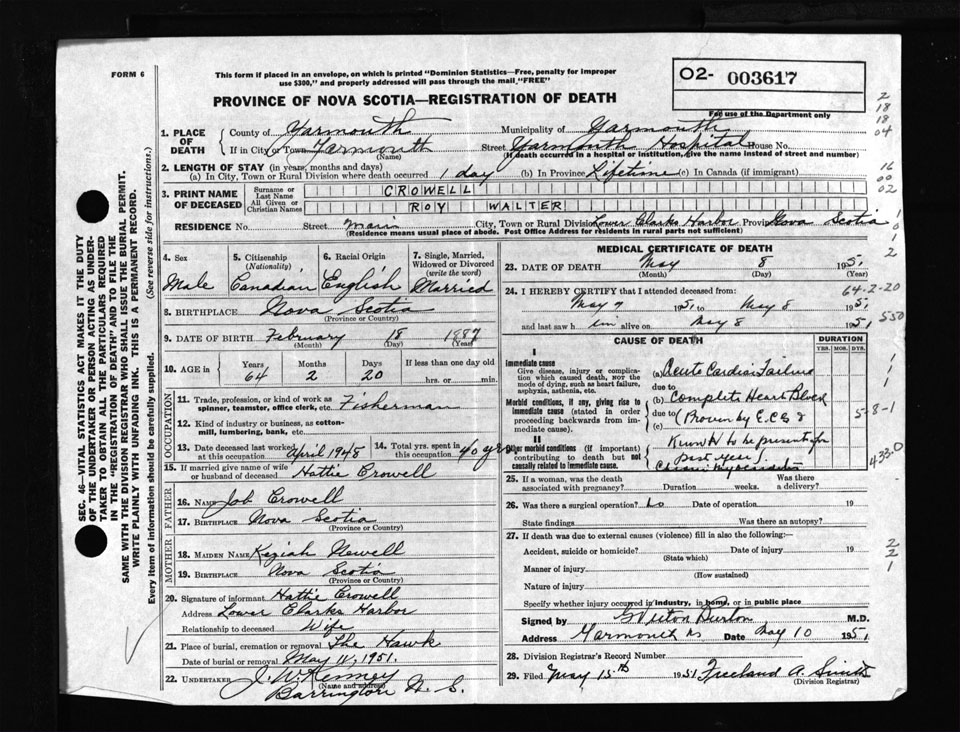 FORM 6
This form if placed in an envelope, on which is printed "Dominion Statistics—Free, penalty for improper
use $300," and properly addressed will pass through the mail "FREE"
O2- 003617
PROVINCE OF NOVA SCOTIA—REGISTRATION OF DEATH
For use of the Department only
2
18
18
04
1. PLACE OF DEATH
County of Yarmouth Municipality of Yarmouth
If in City or Town Yarmouth (Name) Street Yarmouth Hospital House No.
(If death occurred in a hospital or institution, give the name instead of street and number)
2. LENGTH OF STAY (in years, months and days)
(a) In City, Town or Rural Division where death occurred 1 day (b) In Province Lifetime (c) In Canada (if immigrant)
16
00
02
3. PRINT NAME OF DECEASED
Surname or Last Name CROWELL
All Given or Christian Names ROY WALTER
RESIDENCE No. Street Main City, Town or Rural Division Lower Clarks Harbor Province Nova Scotia
(Residence means usual place of abode. Post Office Address for residents in rural parts not sufficient)
1
0
1
2
4. Sex
Male
5. Citizenship (Nationality)
Canadian
6. Racial Origin
English
7. Single, Married, Widowed or Divorced (write the word)
Married
8. BIRTHPLACE Nova Scotia
(Province or Country)
9. DATE OF BIRTH February 18 1887
(Month) (Day) (Year)
10. AGE in Years 64 Months 2 Days 20 If less than one day old
hrs. or min.
OCCUPATION
11. Trade, profession, or kind of work as
spinner, teamster, office clerk, etc. Fisherman
12. Kind of industry or business, as cotton-
mill, lumbering, bank, etc.
13. Date deceased last worked at this occupation April 1948
14. Total yrs. spent in this occupation 40 yrs
15. If married give name of wife
or husband of deceased Hattie Crowell
FATHER
16. Name Job Crowell
17. Birthplace Nova Scotia
(Province or Country)
MOTHER
18. MAIDEN NAME Keziah Newell
19. BIRTHPLACE Nova Scotia
(Province or Country)
20. Signature of informant Hattie Crowell
Address Lower Clarks Harbor
Relationship to deceased Wife
21. Place of burial, cremation or removal The Hawk
Date of burial or removal May 11, 1951.
22. UNDERTAKER J. W. Kenney
(Name and address)
Barrington N. S.
MEDICAL CERTIFICATE OF DEATH
23. DATE OF DEATH May 8 1951
(Month) (Day) (Year)
24. I HEREBY CERTIFY that I attended deceased from:
64-2-20
May 7 1951 to May 8 1951
and last saw him alive on May 8 1951
550
CAUSE OF DEATH
DURATION
YRS. MOS. DYS.
I
Immediate cause
Give disease, injury or complica-
tion which caused death, NOT the
mode of dying, such as heart failure,
asphyxia, asthenia, etc.
(a) Acute Cardiac Failure
due to
Morbid conditions, if any, giving rise to
immediate cause (stated in order
proceeding backwards from im-
mediate cause).
(b) Complete Heart Block
due to (Proven by E.C.G &
(c) Known to be present for
past year).
II
Other morbid conditions (if important)
contributing to death but not
causally related to immediate cause.
Chronic Myocarditis
1
1
1
5-8-1
433.0
25. If a woman, was the death
associated with pregnancy? Duration weeks. Was there
a delivery?
26. Was there a surgical operation? No Date of operation 19
State findings Was there an autopsy?
27. If death was due to external causes (violence) fill in also the following:—
Accident, suicide or homicide? Date of injury 19
(State which)
Manner of injury
(How sustained)
Nature of injury
Specify whether injury occurred in industry, in home, or in public place
2
2
1
Signed by Burton M.D.
Address Yarmouth NS Date May 10 1951
28. Division Registrar's Record Number
29. Filed May 15th 1951 Freeland A. Smith
(Division Registrar)
SEC. 46—VITAL STATISTICS ACT MAKES IT THE DUTY
OF THE UNDERTAKER OR PERSON ACTING AS UNDER-
TAKER TO OBTAIN ALL THE PARTICULARS REQUIRED
IN THE "REGISTRATION OF DEATH" AND TO FILE THE
SAME WITH THE DIVISION REGISTRAR WHO SHALL ISSUE THE BURIAL PERMIT.
WRITE PLAINLY WITH UNFADING INK. THIS IS A PERMANENT RECORD.
Every item of information should be carefully supplied. (See reverse side for instructions.)